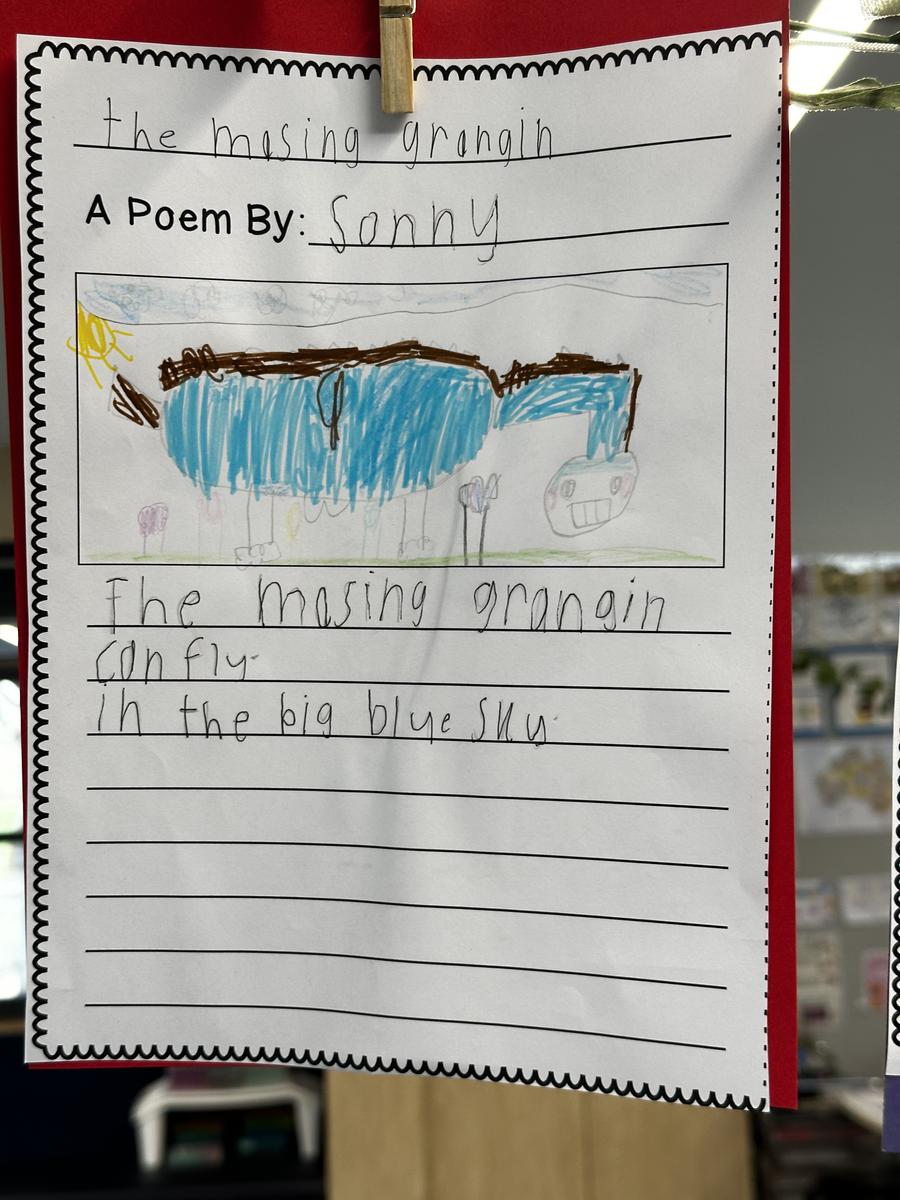 the masing grangin
A Poem By: Sonny
The masing grangin
can fly.
in the big blue sky.